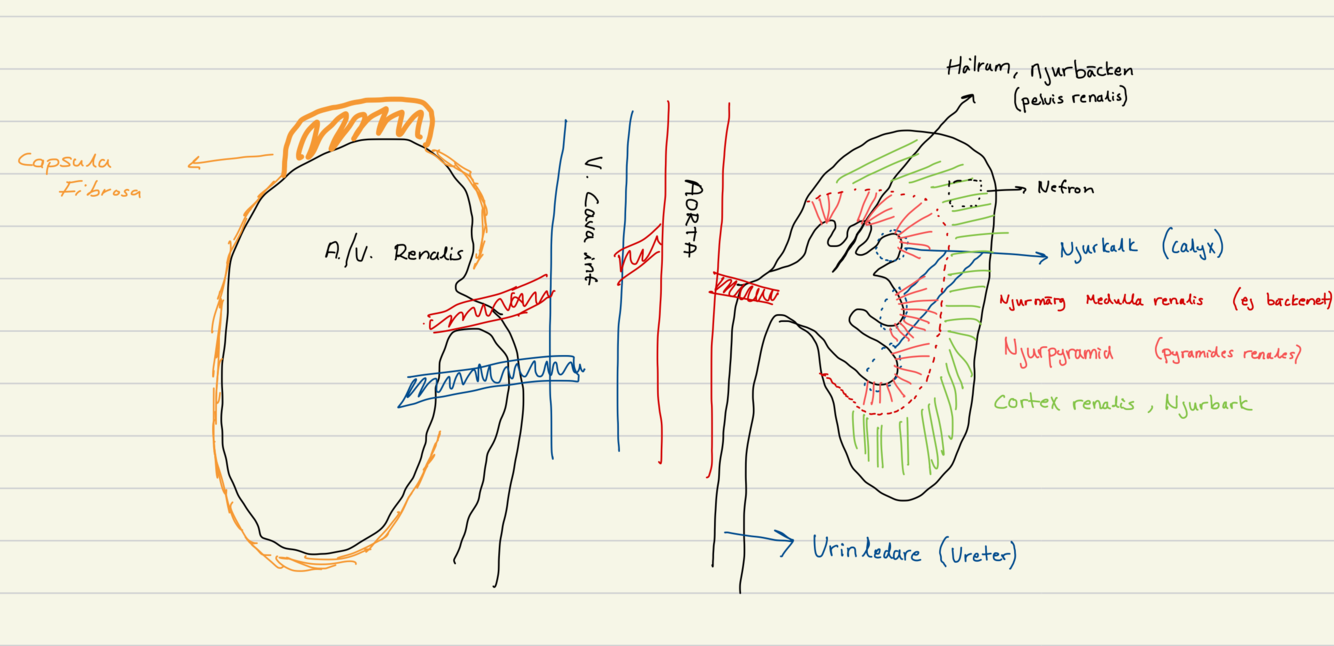 Hålrum, Njurbäcken
(pelvis renalis)
Capsula
Fibrosa
V. Cava inf
AORTA
Nefron
A./V. Renalis
Njurkalk (calyx)
Njurmärg Medulla renalis (ej backenet)
Njurpyramid (pyramides renales)
Cortex renalis, Njurbark
Urinledare (Ureter)